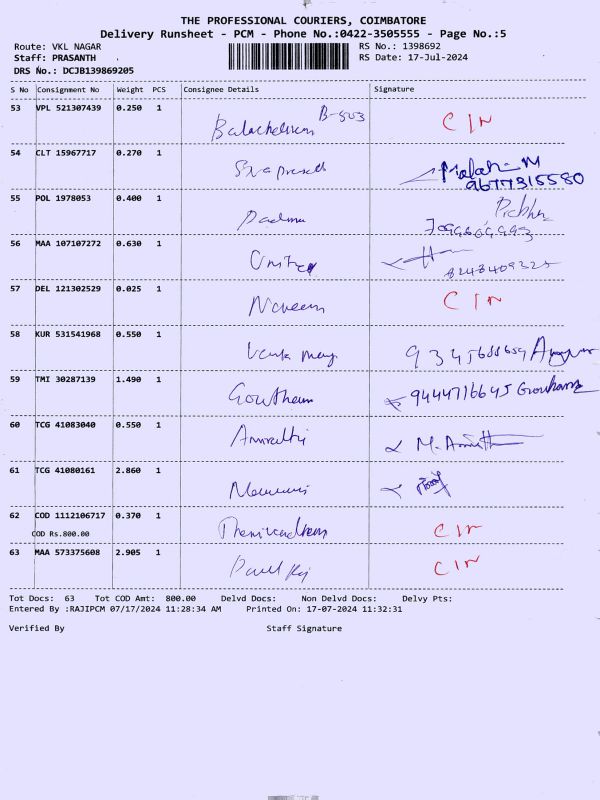 THE PROFESSIONAL COURIERS, COIMBATORE
Delivery Runsheet - PCM - Phone No.:0422-3505555 - Page No.:5
Route: VKL NAGAR RS No.: 1398692
Staff: PRASANTH RS Date: 17-Jul-2024
DRS No.: DCJB139869205
S No Consignment No Weight PCS Consignee Details Signature
53 VPL 521307439 0.250 1 B-503 CIN
54 CLT 15967717 0.270 1 M
9677315580
55 POL 1978053 0.400 1 Padma
56 MAA 107107272 0.630 1
8248409325
57 DEL 121302529 0.025 1 Naveen CIN
58 KUR 531541968 0.550 1
59 TMI 30287139 1.490 1 Gowtham 9444716645 Gowtham
60 TCG 41083040 0.550 1
61 TCG 41080161 2.860 1
62 COD 1112106717 0.370 1 CIN
COD Rs.800.00
63 MAA 573375608 2.905 1 Paul Raj CIN
Tot Docs: 63 Tot COD Amt: 800.00 Delvd Docs: Non Delvd Docs: Delvy Pts:
Entered By :RAJIPCM 07/17/2024 11:28:34 AM Printed On: 17-07-2024 11:32:31
Verified By Staff Signature